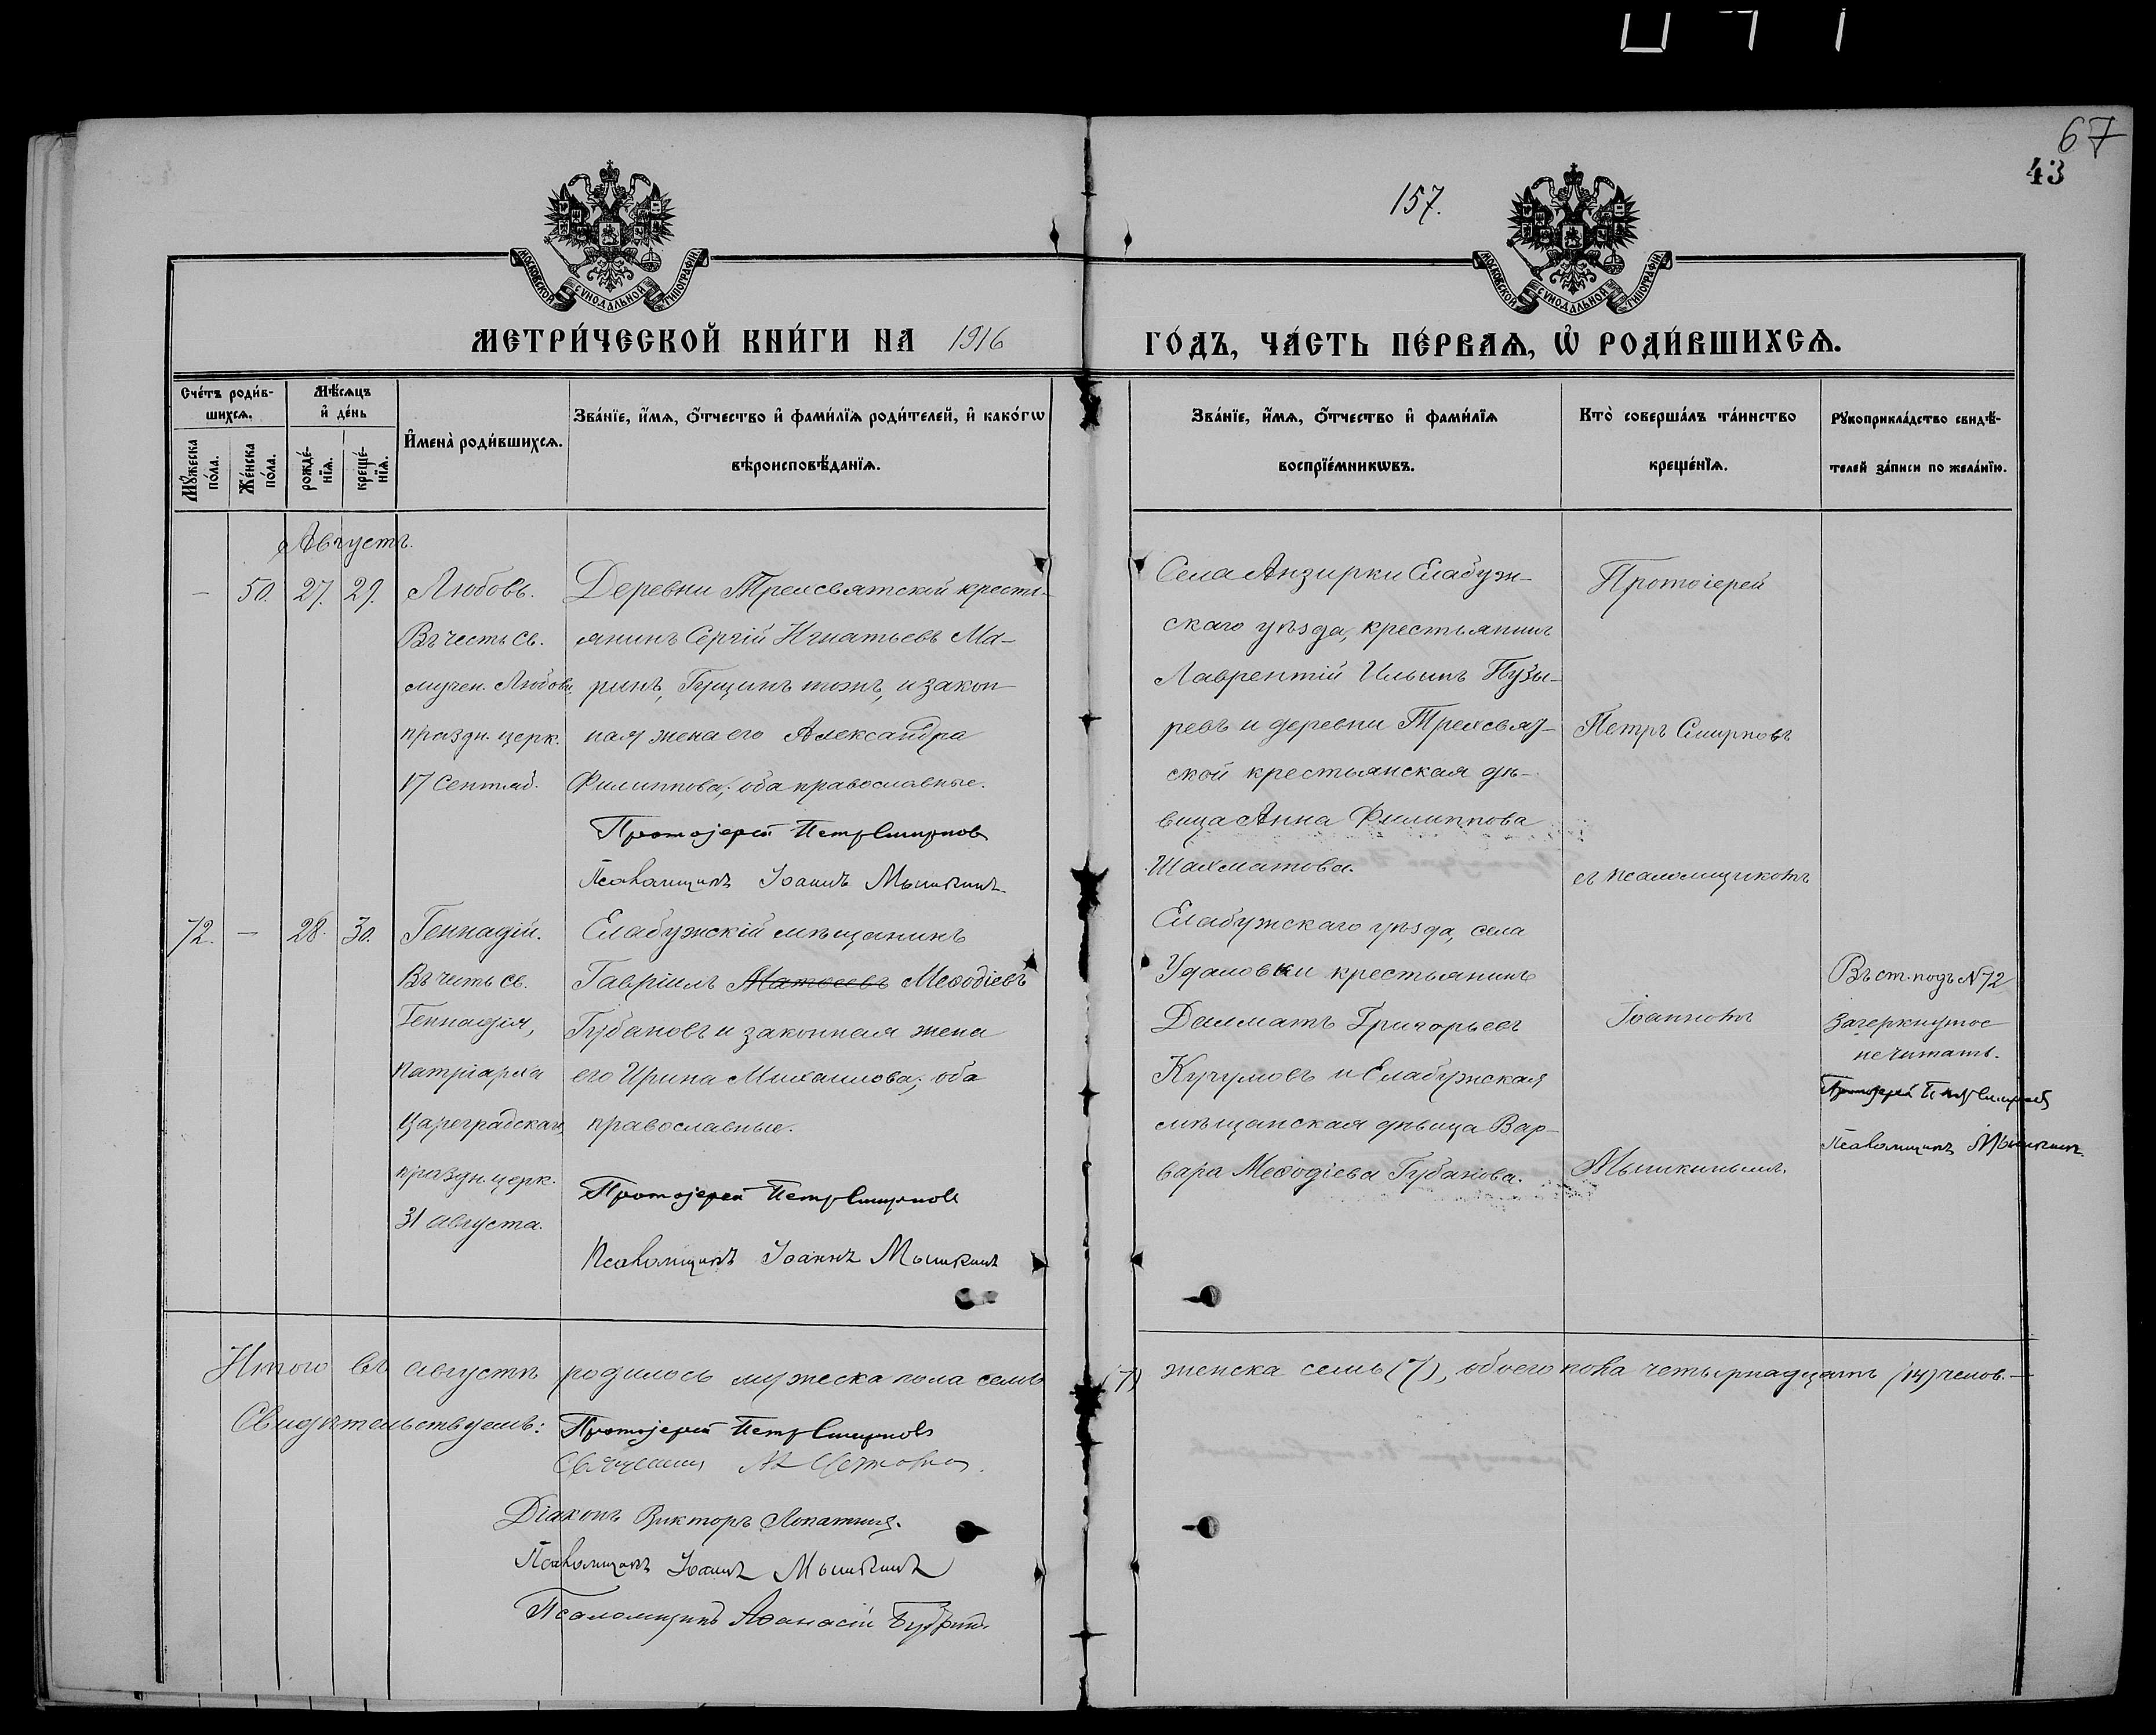 67
43
157.
МОСКОВСКОЙ СѴНОДАЛЬНОЙ ТИПОГРАФІИ
МОСКОВСКОЙ СѴНОДАЛЬНОЙ ТИПОГРАФІИ
МЕТРИ́ЧЕСКОЙ КНИ́ГИ НА 1916
ГО́ДЪ, ЧА́СТЬ ПЕ́РВАѦ, Ѡ РОДИ́ВШИХСѦ.
Сче́тъ роди́в-
шихсѧ.
Мꙋ́жеска
по́ла.
Же́нска
по́ла.
Мѣ́сѧцъ
и де́нь
рожде́-
нїѧ.
креще́-
нїѧ.
Имена̀ роди́вшихсѧ.
Зва́нїе, и́мѧ, о́тчество и фами́лїѧ роди́телей, и како́гѡ
вѣроисповѣ́данїѧ.
Зва́нїе, и́мѧ, о́тчество и фами́лїѧ
воспрїе́мникѡвъ.
Кто̀ соверша́лъ та́инство
креще́нїѧ.
Рꙋкоприкла́дство свидѣ́-
телей за́писи по жела́нїю.
Августъ.
— 50. 27. 29.
Любовь.
Въ честь св.
мучен. Любови,
праздн. церк.
17 Сентяб.
Деревни Трехсвятской кресть-
янинъ Сергій Игнатьевъ Ма-
ринъ, Гущинъ тожъ, и закон-
ная жена его Александра
Филиппова; оба православные.
Протоіерей Петръ Смирновъ
Псаломщикъ Іоаннъ Мышкинъ.
Села Анзирки Елабуж-
скаго уѣзда, крестьянинъ
Лаврентій Ильинъ Пузы-
ревъ и деревни Трехсвят-
ской крестьянская дѣ-
вица Анна Филиппова
Шахматова.
Протоіерей
Петръ Смирновъ
съ псаломщикомъ
Іоанномъ
Мышкинымъ.
72. — 28. 30.
Геннадій.
Въ честь св.
Геннадія,
Патріарха
Цареградскаго,
праздн. церк.
31 августа.
Елабужскій мѣщанинъ
Гавріилъ Матвеевъ Меѳодіевъ
Губановъ и законная жена
его Ирина Михаилова; оба
православные.
Протоіерей Петръ Смирновъ
Псаломщикъ Іоаннъ Мышкинъ
Елабужскаго уѣзда, села
Удаловки крестьянинъ
Далматъ Григорьевъ
Кучумовъ и Елабужская
мѣщанская дѣвица Вар-
вара Меѳодіева Губанова.
Въ ст. подъ №72
Зачеркнутое
не читать.
Протоіерей Петръ Смирновъ
Псаломщикъ Мышкинъ
Итого въ августѣ родилось мужеска пола семь (7) женска семь (7), обоего пола четырнадцать (14) челов.—
Свидѣтельствуемъ: Протоіерей Петръ Смирновъ
Священникъ
Діаконъ Викторъ Лопатинъ.
Псаломщикъ Іоаннъ Мышкинъ
Псаломщикъ Аѳанасій